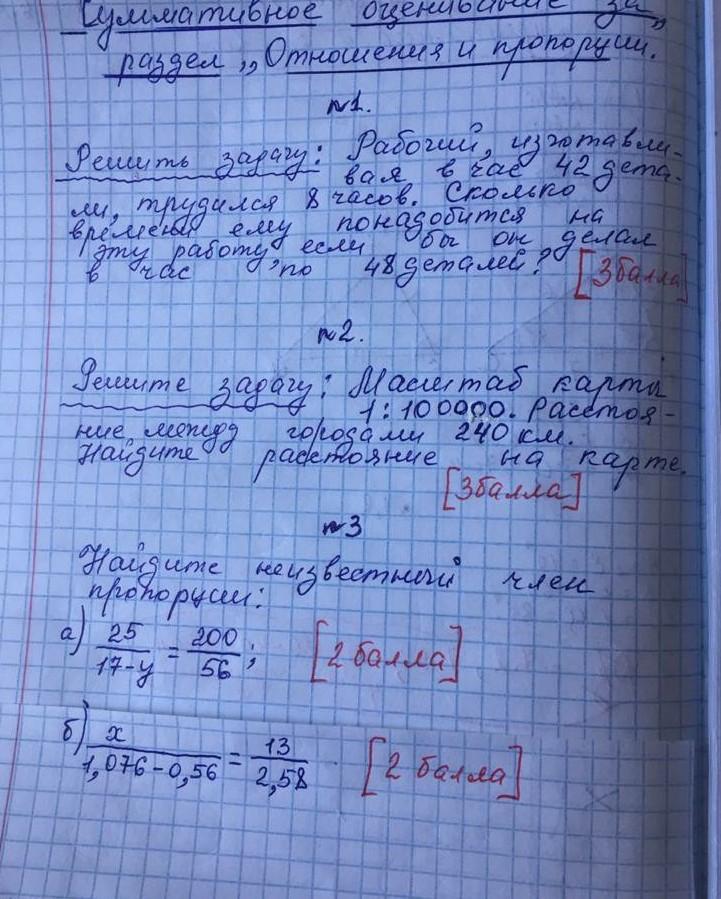 Суммативное оценивание за
раздел „Отношения и пропорции."
№1.
Решить задачу: Рабочий, изготавли-
вая в час 42 дета-
ли, трудился 8 часов. Сколько
времени ему понадобится на
эту работу, если бы он делал
в час по 48 деталей? [3 балла]
№2.
Решите задачу: Масштаб карты
1 : 100000. Расстоя-
ние между городами 240 км.
Найдите расстояние на карте.
[3 балла]
№3
Найдите неизвестный член
пропорции:
а) 25/(17-у) = 200/56; [2 балла]
б) х/(1,076-0,56) = 13/2,58 [2 балла]